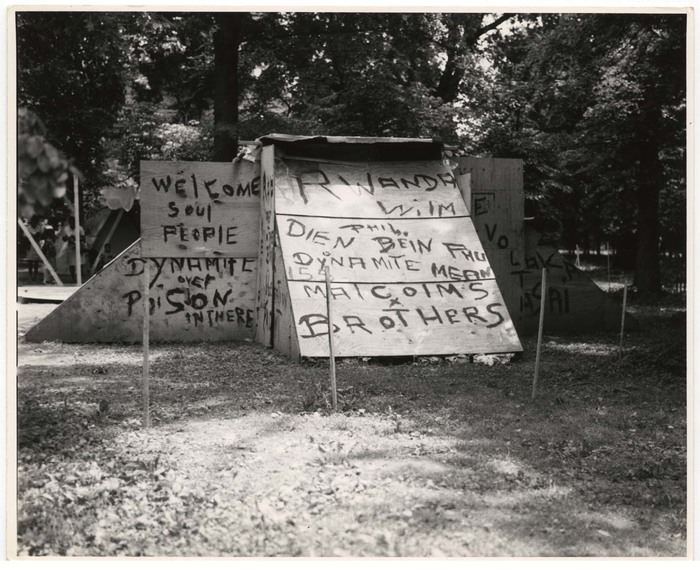 WELCOME
SOUL
PEOPLE
DYNAMITE
OVER
POISON
IN THERE
RWANDA
WILM
PHIL.
DIEN BEIN FHU
DYNAMITE MEAN
MALCOLM'S
X
BROTHERS
E
VO